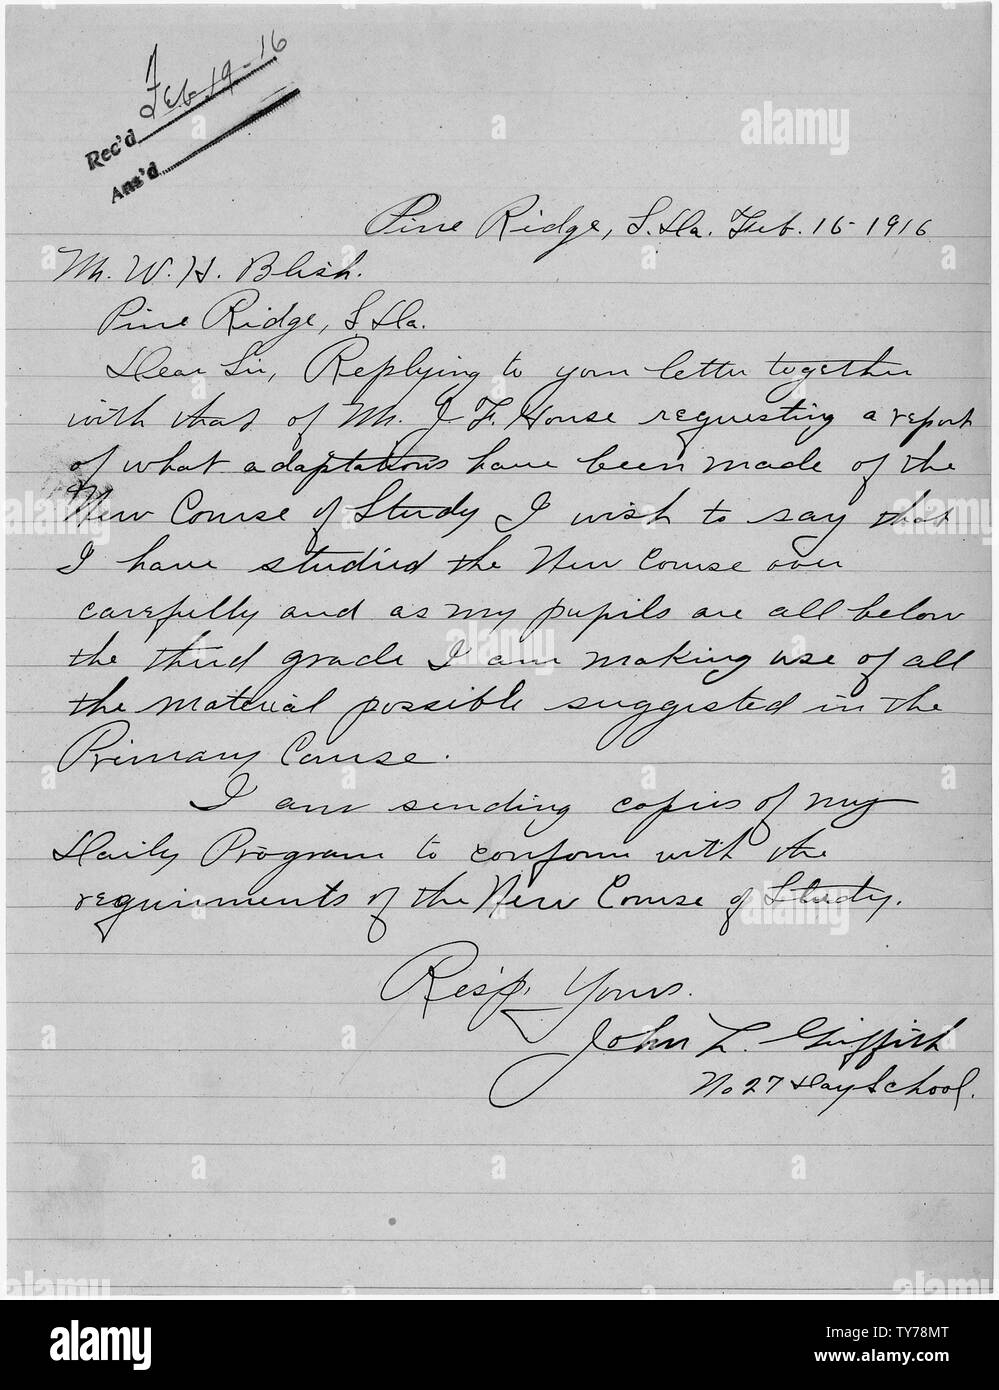 Feb 19-16
Rec'd
Ans'd
Pine Ridge, S. Da. Feb. 15-1916
Mr. W. H. Blish.
Pine Ridge, S. Da.
Dear Sir, Replying to your letter together
with that of Mr. J. F. House requesting a report
of what adaptations have been made of the
New Course of Study I wish to say that
I have studied the New Course over
carefully and as my pupils are all below
the third grade I am making use of all
the material possible suggested in the
Primary Course.
I am sending copies of my
Daily Program to conform with the
requirments of the New Course of Study.
Resp. Yours.
John L. Griffith
No 27 Day School.
alamy
Image ID: TY78MT
www.alamy.com